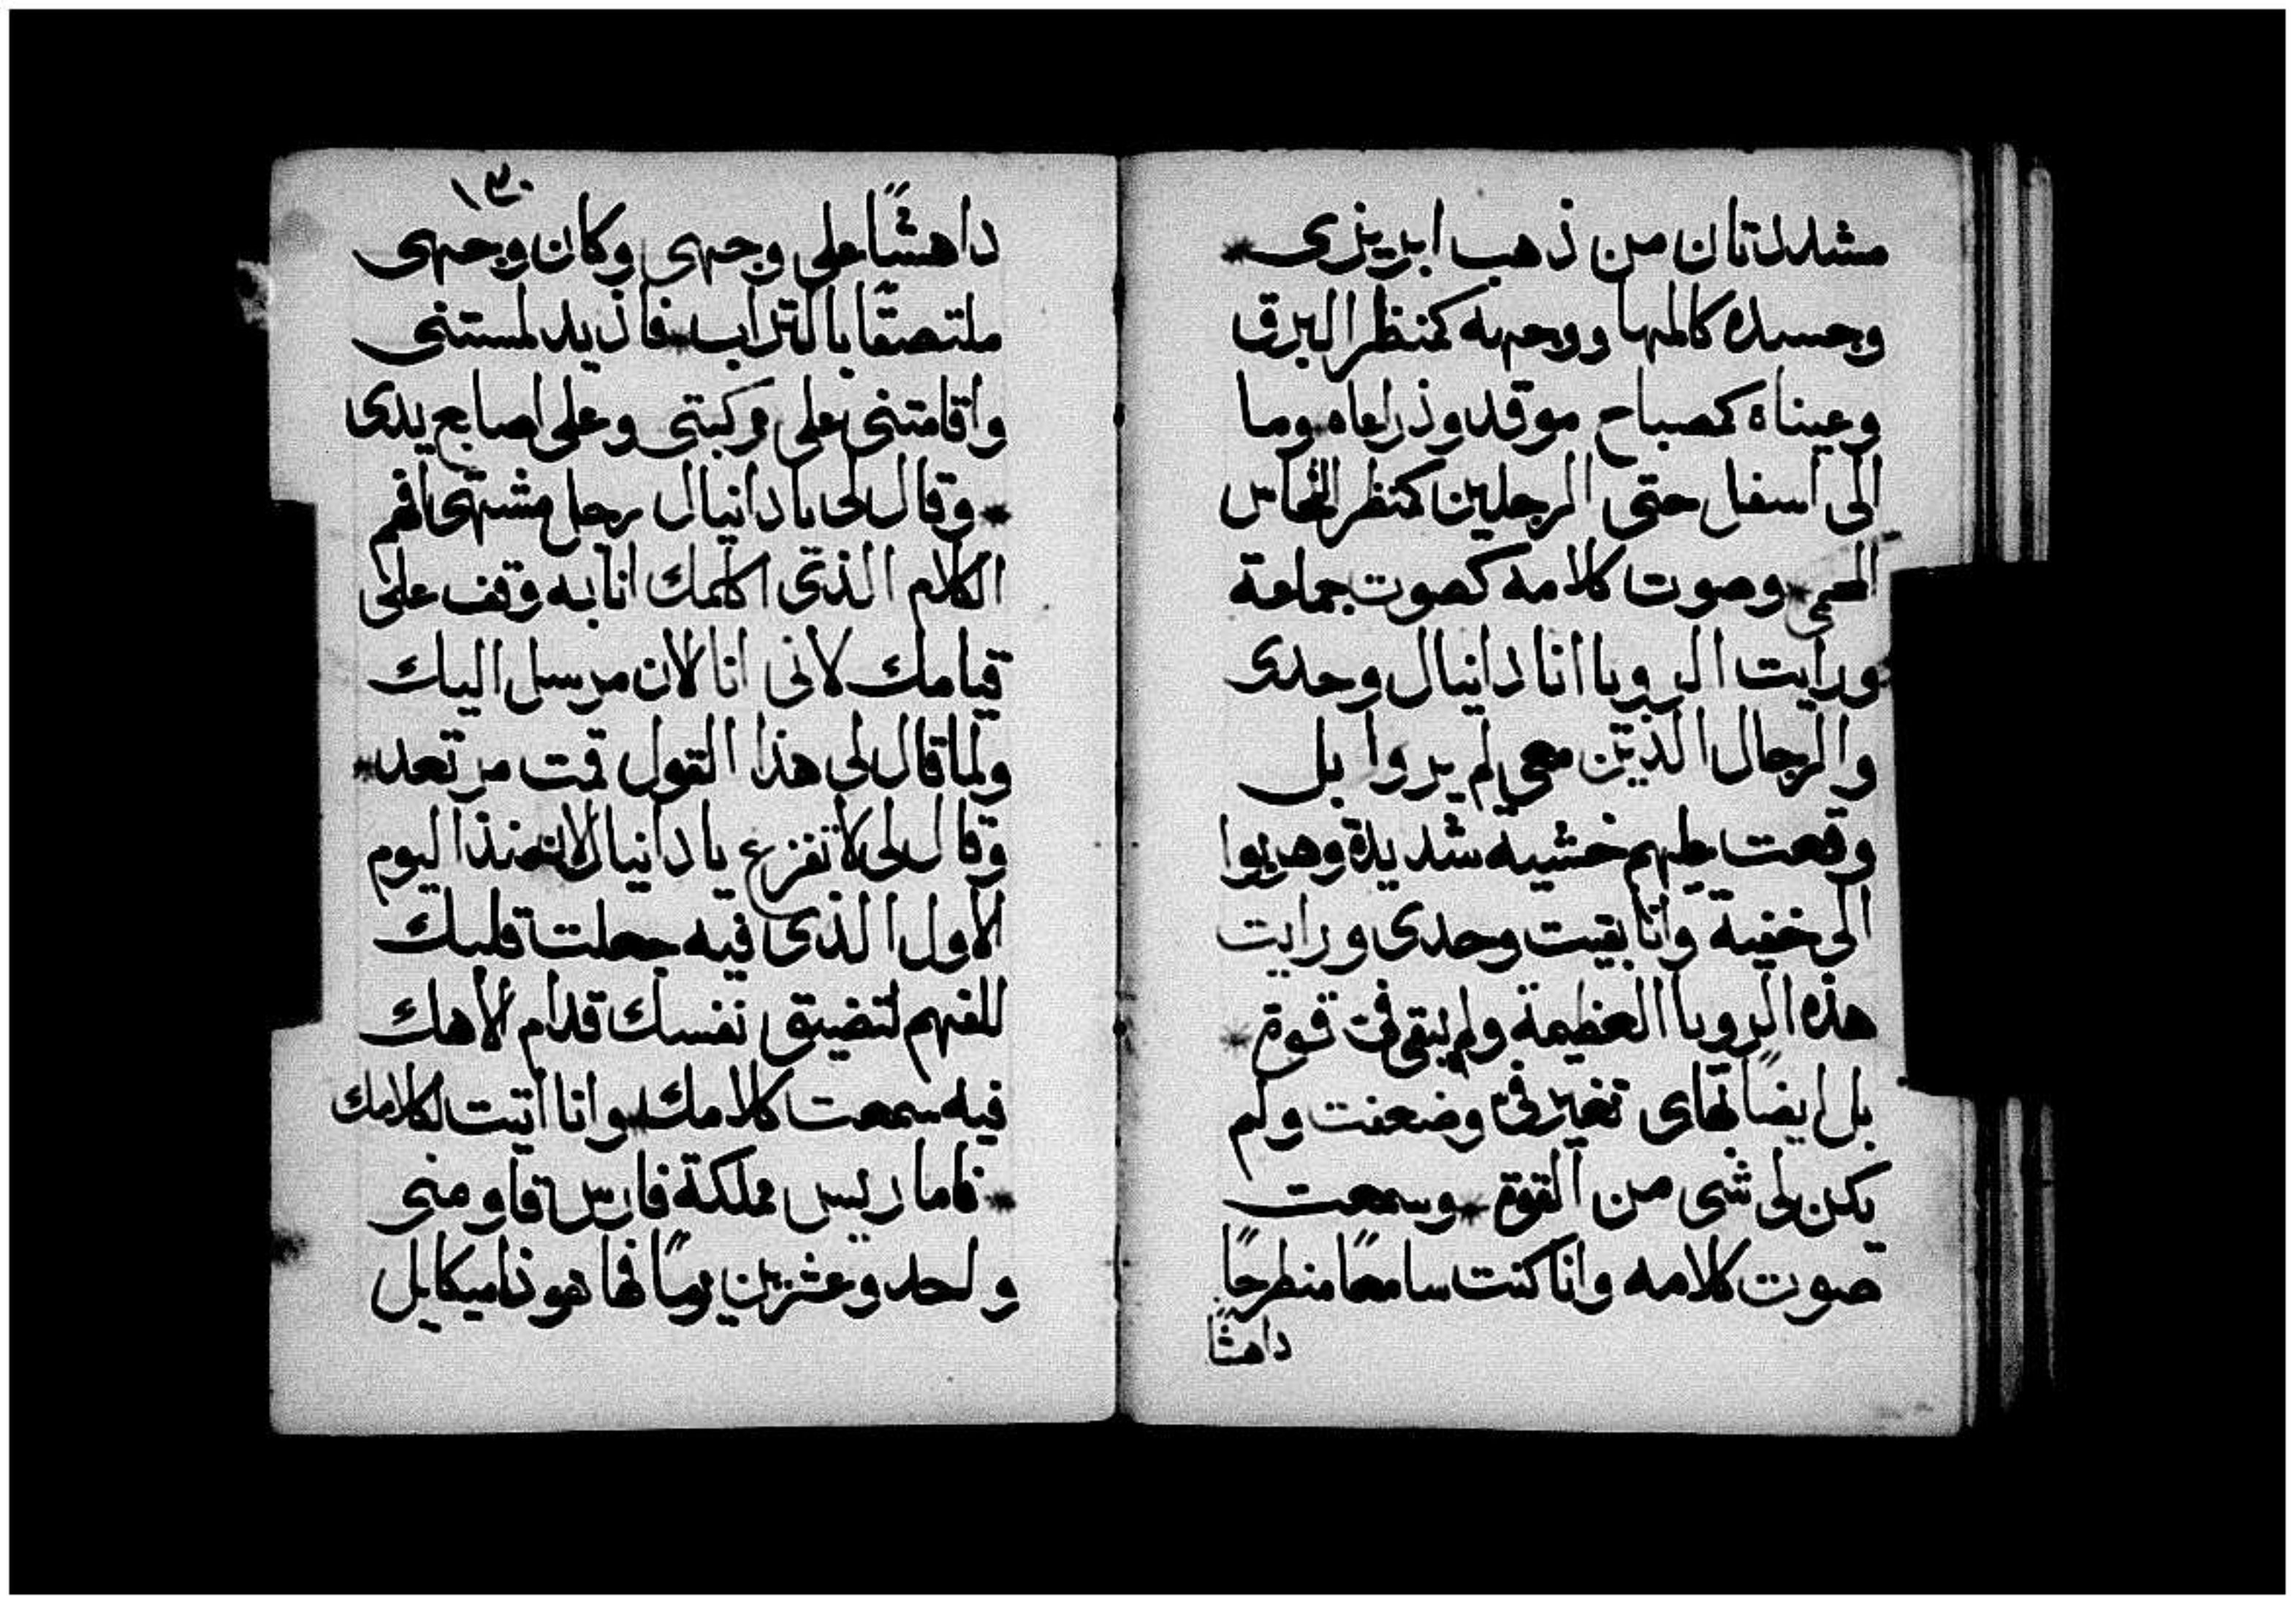 مشددتان من ذهب ابريزى *
وجسده كالمها ووجهه كمنظر البرق
وعيناه كمصباح موقد وذراعاه وما
الى اسفل حتى الرجلين كمنظر النحاس
المحمى * وصوت كلامه كصوت جماعة
ورايت الرويا انا دانيال وحدى
والرجال الذين معى لم يروا بل
وقعت عليهم خشيه شديدة وهربوا
الى خفية وانا بقيت وحدى ورايت
هذه الرويا العظيمة ولم يبقى فى قوة *
بل ايضًا بهاى تغير فى وضعفت ولم
يكن لى شى من القوة * وسمعت
صوت كلامه وانا كنت سامعًا منطرحًا
داهشًا
١٣٠
داهشًا على وجهى وكان وجهى
ملتصقًا بالتراب * فاذ يد لمستنى
واقامتنى على ركبتى وعلى اصابع يدى
* وقال لى يا دانيال رجل مشتهى افهم
الكلام الذى اكلمك انا به وقف على
قيامك لانى انا الان مرسل اليك
ولما قال لى هذا القول قمت مرتعد *
وقال لى لا تفزع يا دانيال لان منذ اليوم
الاول الذى فيه جعلت قلبك
للفهم لتضيق نفسك قدام الاهك
فيه سمعت كلامك وانا اتيت لكلامك
* فاما ريس مملكة فارس قاومنى
واحد وعشرين يومًا فها هوذا ميكاييل